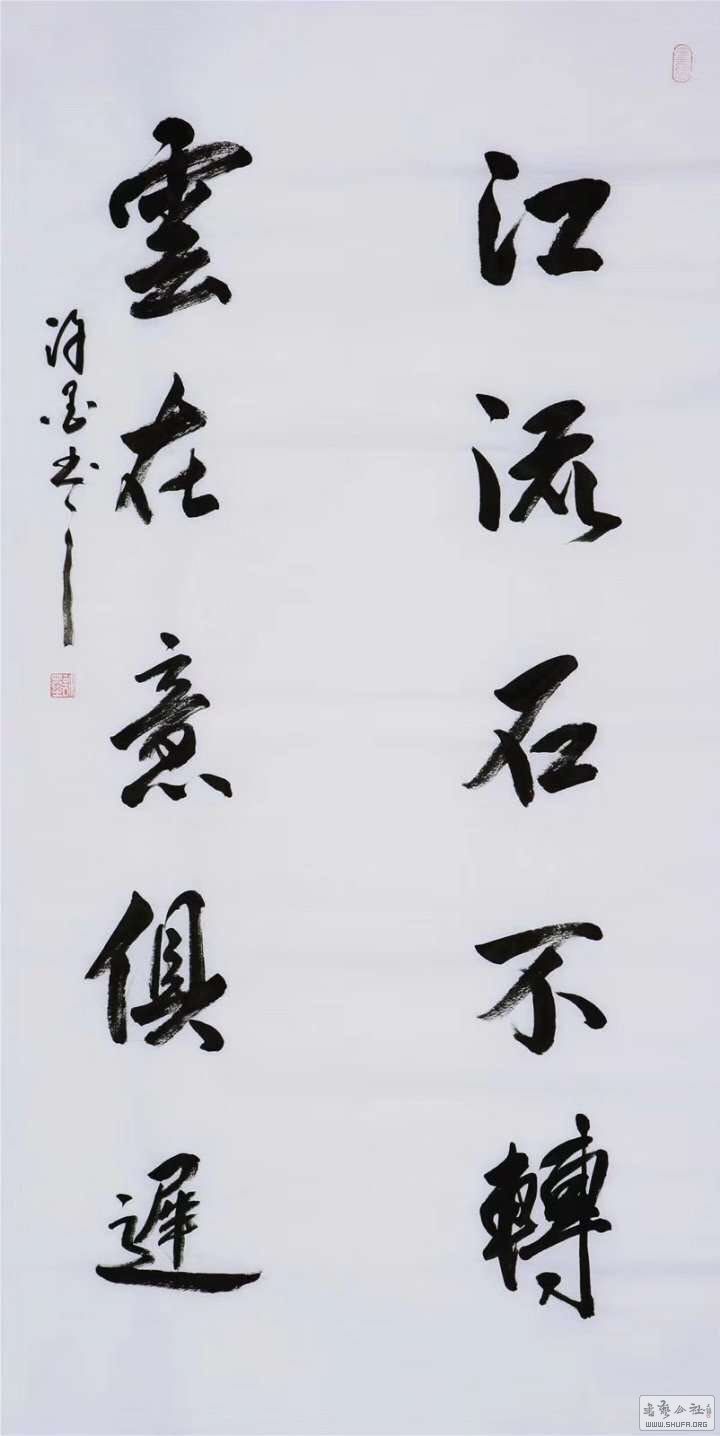 江流石不轉
雲在意俱遲
许墨书
書藝公社
WWW.SHUFA.ORG